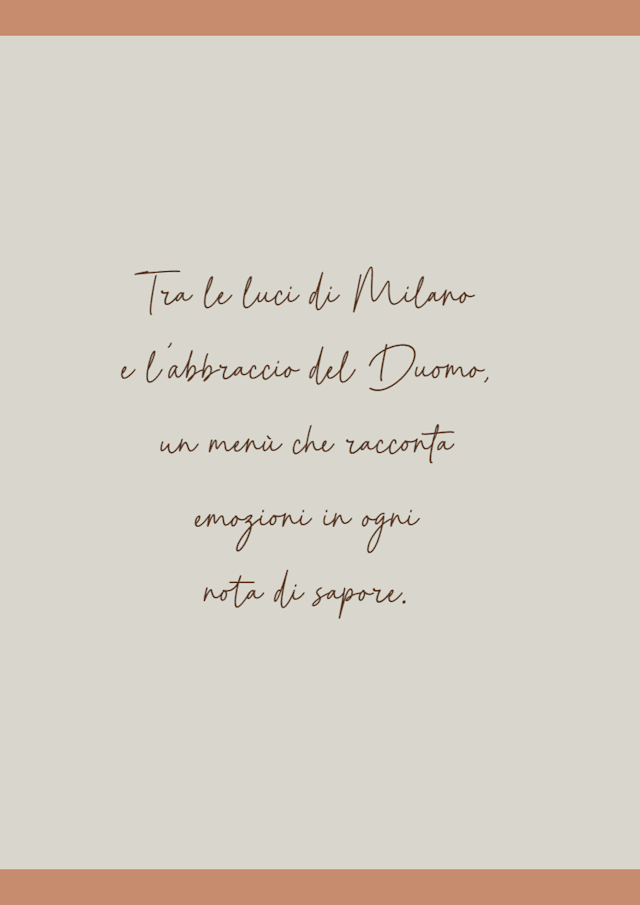 Tra le luci di Milano
e l'abbraccio del Duomo,
un menù che racconta
emozioni in ogni
nota di sapore.